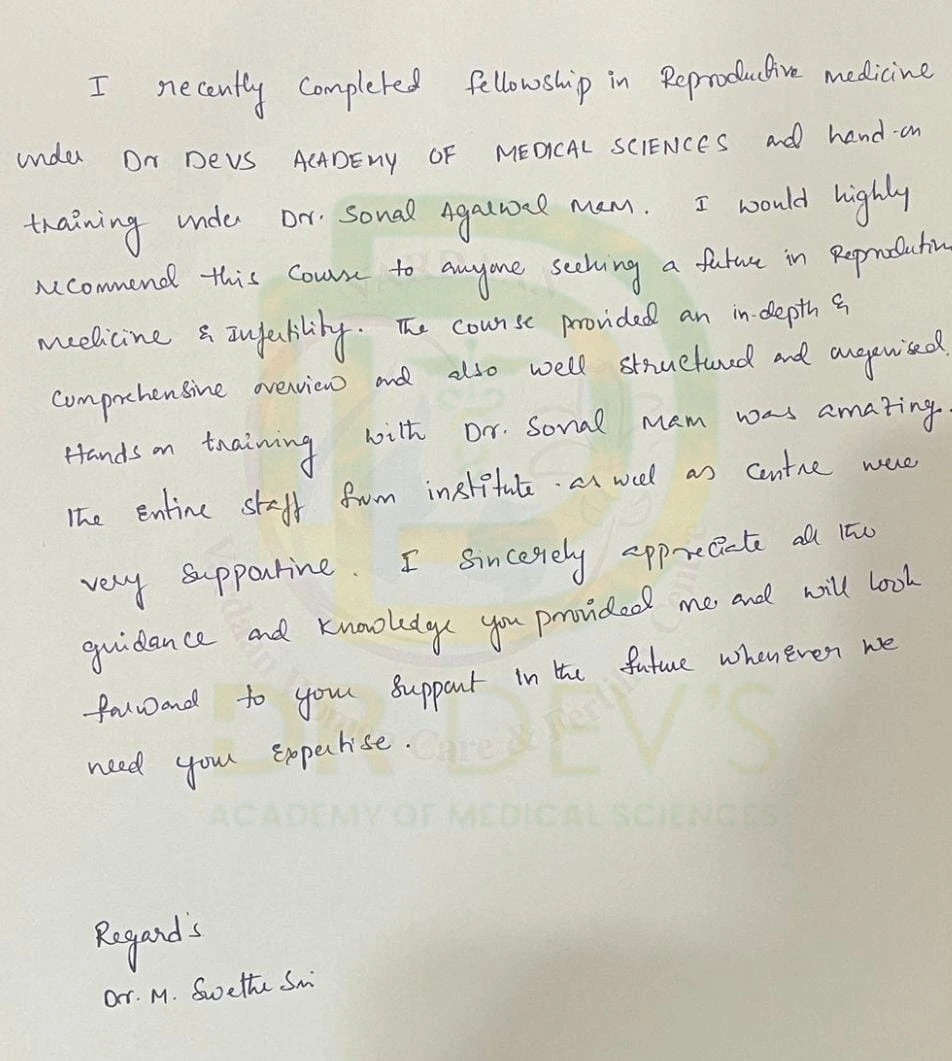 I recently Completed fellowship in Reproductive medicine
under Dr DEVS ACADEMY OF MEDICAL SCIENCES and hand-on
training under Dr. Sonal Agarwal Mam. I would highly
recommend this Course to anyone seeking a future in Reproductive
Medicine & Infertility. The course provided an in-depth &
Comprehensive overview and also well structured and organised.
Hands on training with Dr. Sonal Mam was amazing.
The Entire staff from institute as well as Centre were
very Supportive. I Sincerely appreciate all the
guidance and Knowledge you provided me and will look
forward to your Support in the future whenever we
need your Expertise.
Women's Care & Fertility Centre
DR DEV'S
ACADEMY OF MEDICAL SCIENCES
Regard's
Dr. M. Swetha Sri